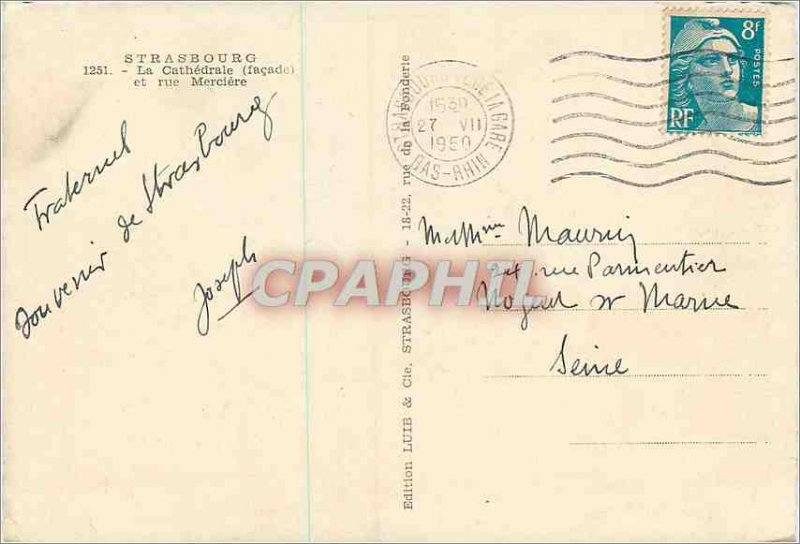 STRASBOURG
1251. - La Cathédrale (façade)
et rue Mercière
Fraternel
Souvenir de Strasbourg
Joseph
Edition LUIB & Cie, STRASBOURG - 18-22, rue de la Fonderie
GARE
27 VII
1950
BAS-RHIN
8f
POSTES
RF
rue Parmentier
Nogent s/ Marne
Seine
CPAPHIL